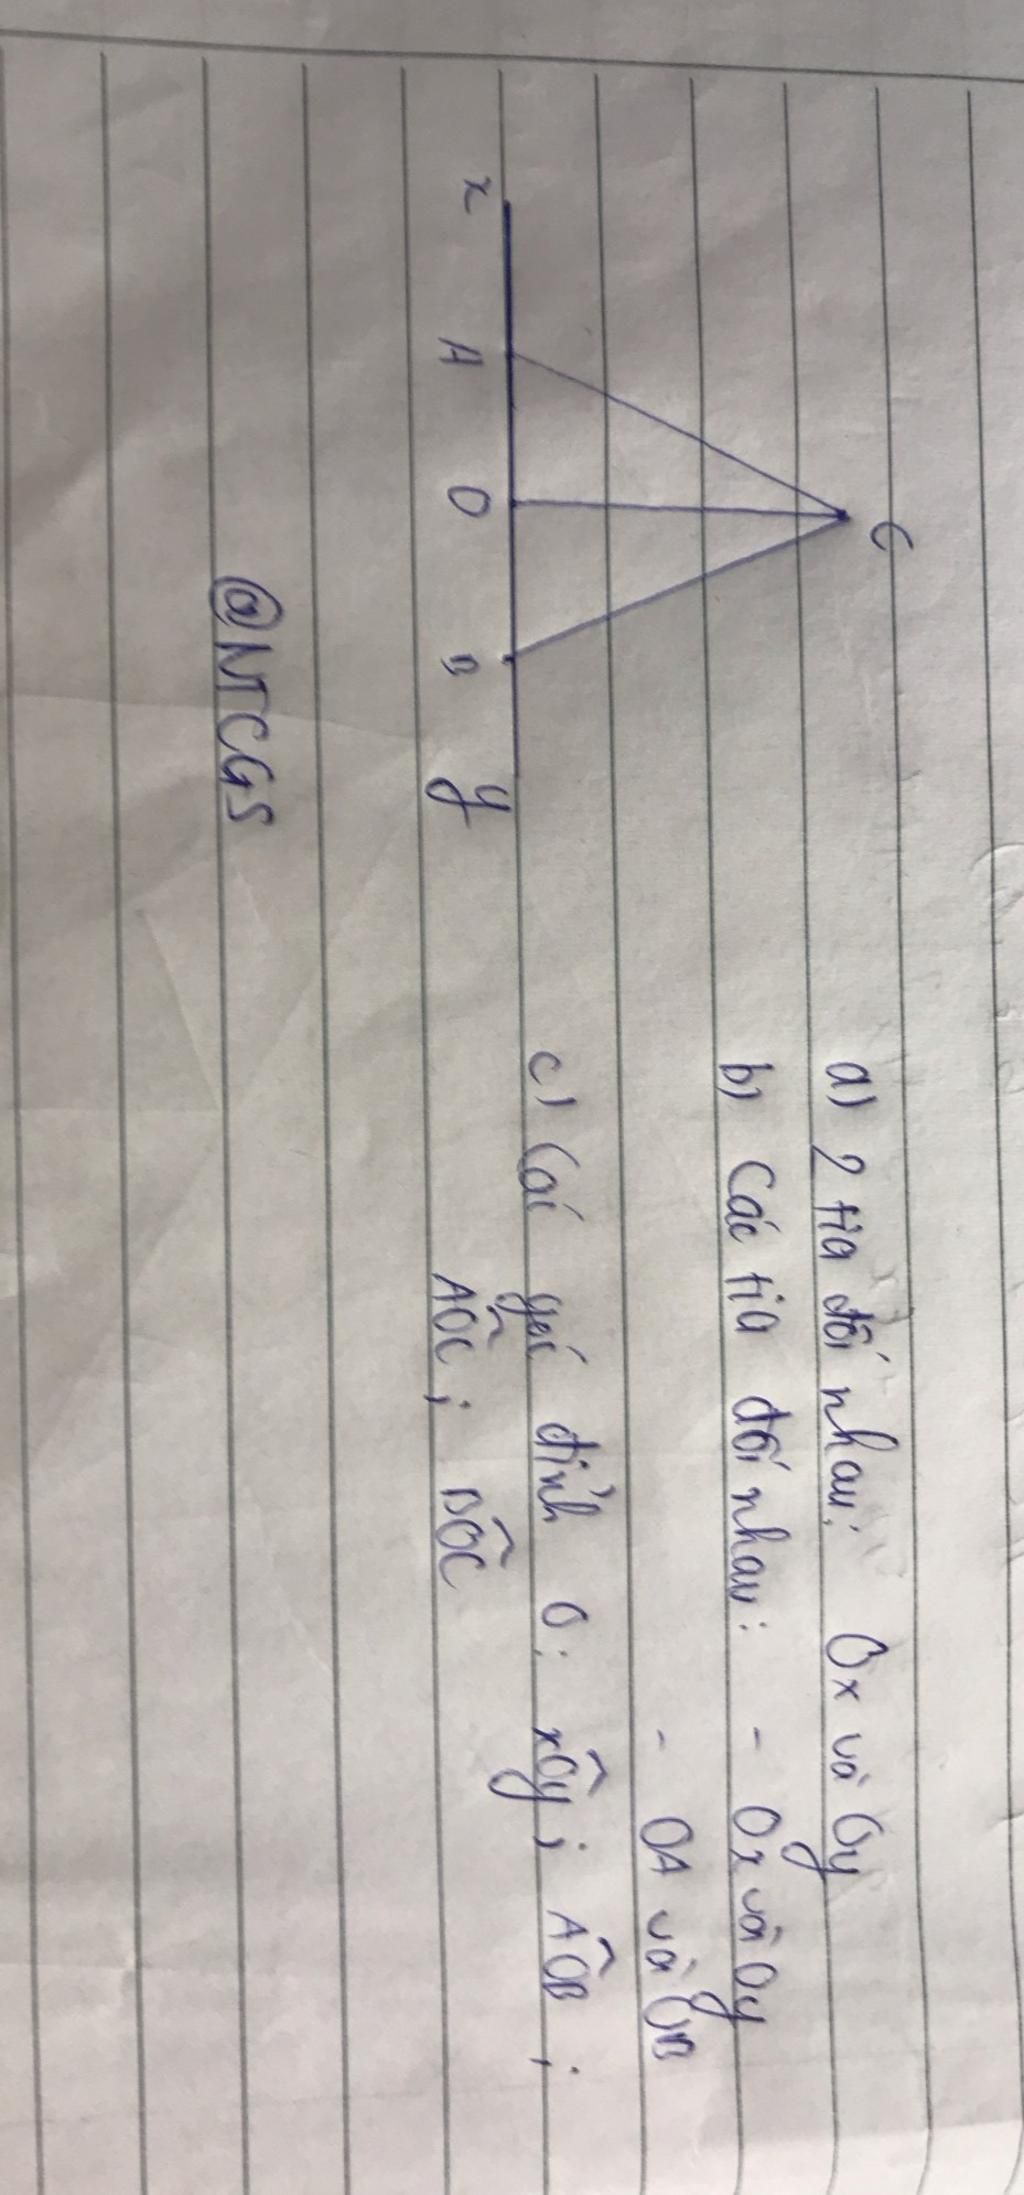 C
x A O B y
@NTCGS
a) 2 tia đối nhau: Ox và Oy
b) Các tia đối nhau: - Ox và Oy
- OA và OB
c) Cái góc đỉnh O: xÔy; AÔB;
AÔC; BÔC